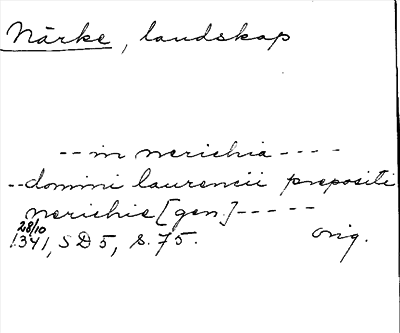 Närke, landskap
-- in nerichia ----
-- domini laurencii prepositi
nerichie [gen.] -----
28/10
1341, SD 5, s. 75. orig.